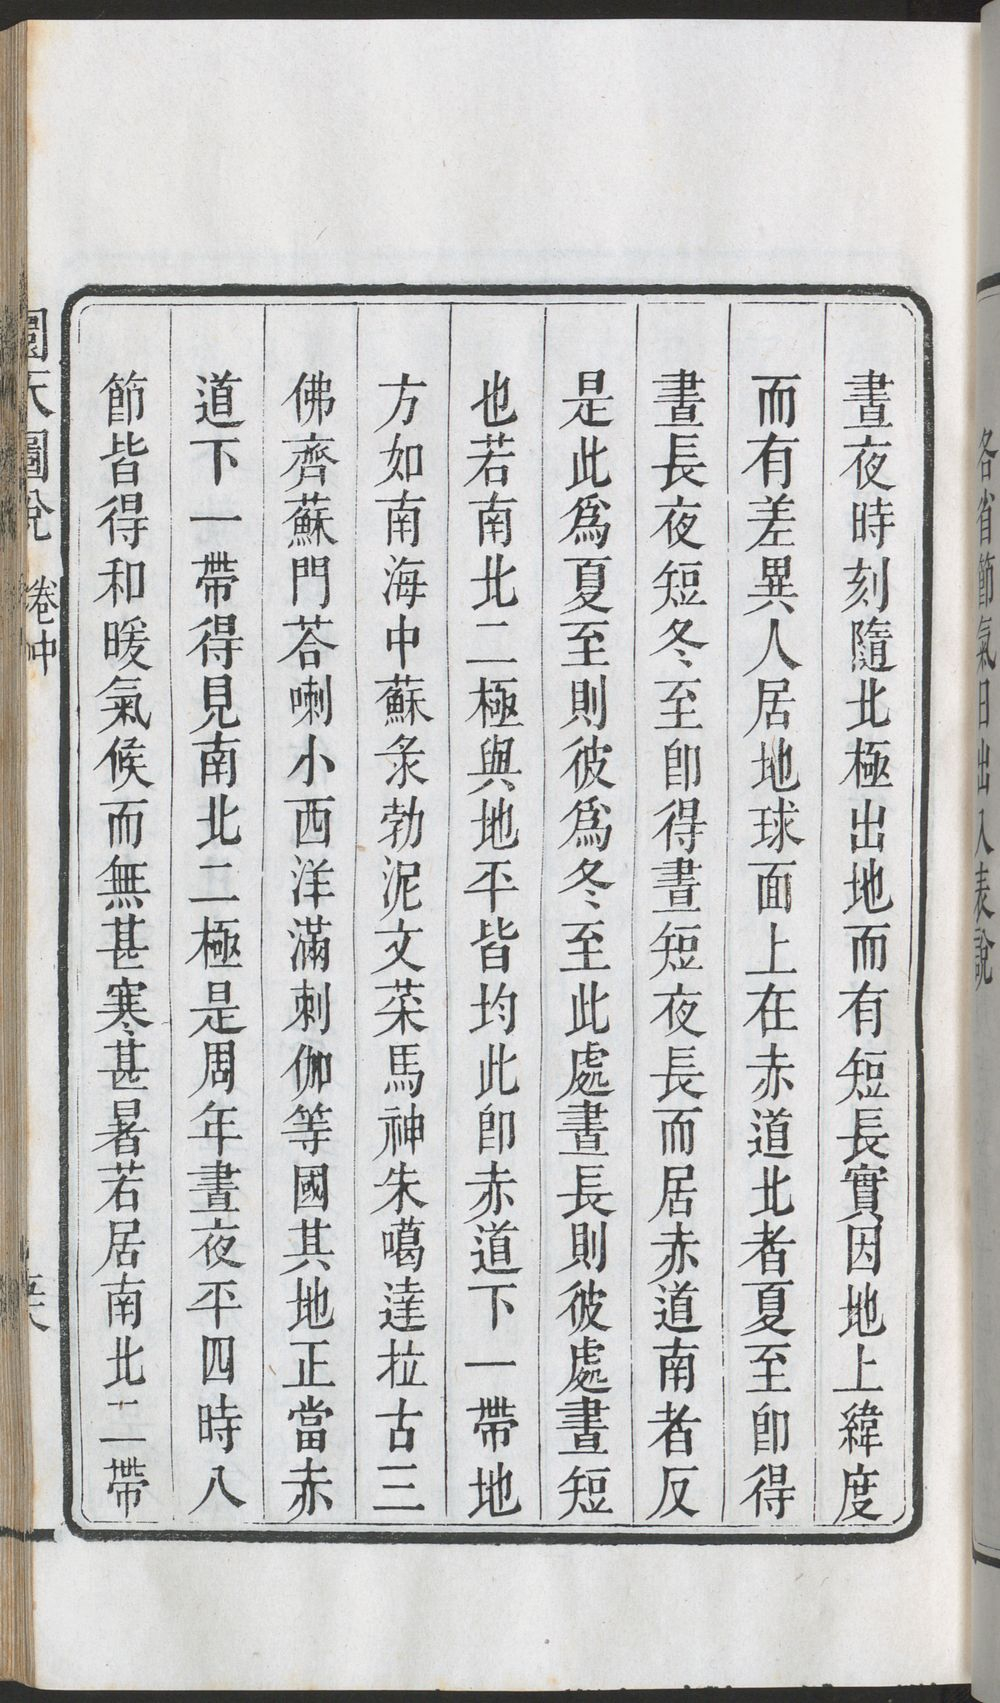 各省節氣日出入表說
晝夜時刻隨北極出地而有短長實因地上緯度
而有差異人居地球面上在赤道北者夏至卽得
晝長夜短冬至卽得晝短夜長而居赤道南者反
是此爲夏至則彼爲冬至此處晝長則彼處晝短
也若南北二極與地平皆均此卽赤道下一帶地
方如南海中蘇彔勃泥文萊馬神朱噶達拉古三
佛齊蘇門荅喇小西洋滿剌伽等國其地正當赤
道下一帶得見南北二極是周年晝夜平四時八
節皆得和暖氣候而無甚寒甚暑若居南北二帶
圜天圖說 卷中